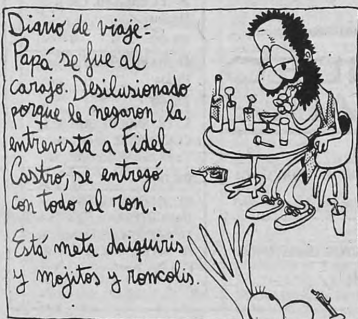 Diario de viaje:
Papá se fue al
carajo. Desilusionado
porque le negaron la
entrevista a Fidel
Castro, se entregó
con todo al ron.
Está meta daiquiris
y mojitos y roncolis.